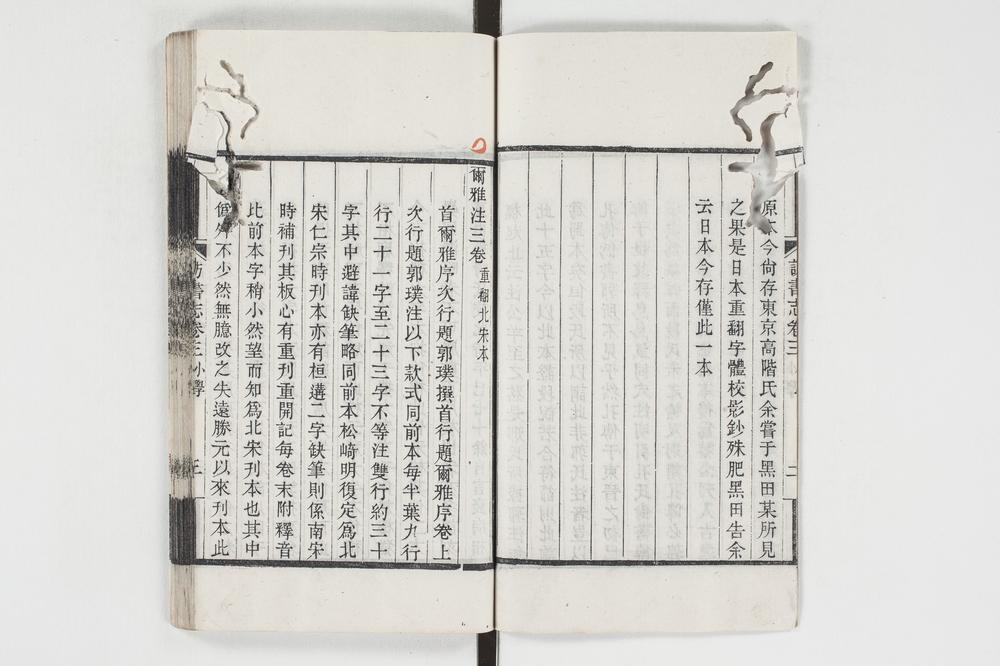 原本今尙存東京高階氏余嘗于黑田某所見
之果是日本重翻字體校影鈔殊肥黑田告余
云日本今存僅此一本
書志卷三
二
爾雅注三卷 重翻北宋本
首爾雅序次行題郭璞撰首行題爾雅序卷上
次行題郭璞注以下款式同前本每半葉九行
行二十一字至二十三字不等注雙行約三十
字其中避諱缺筆略同前本松崎明復定爲北
宋仁宗時刊本亦有桓遘二字缺筆則係南宋
時補刊其板心有重刊重開記每卷末附釋音
比前本字稍小然望而知爲北宋刊本也其中
不少然無臆改之失遠勝元以來刊本此
訪書志卷三 小學
三